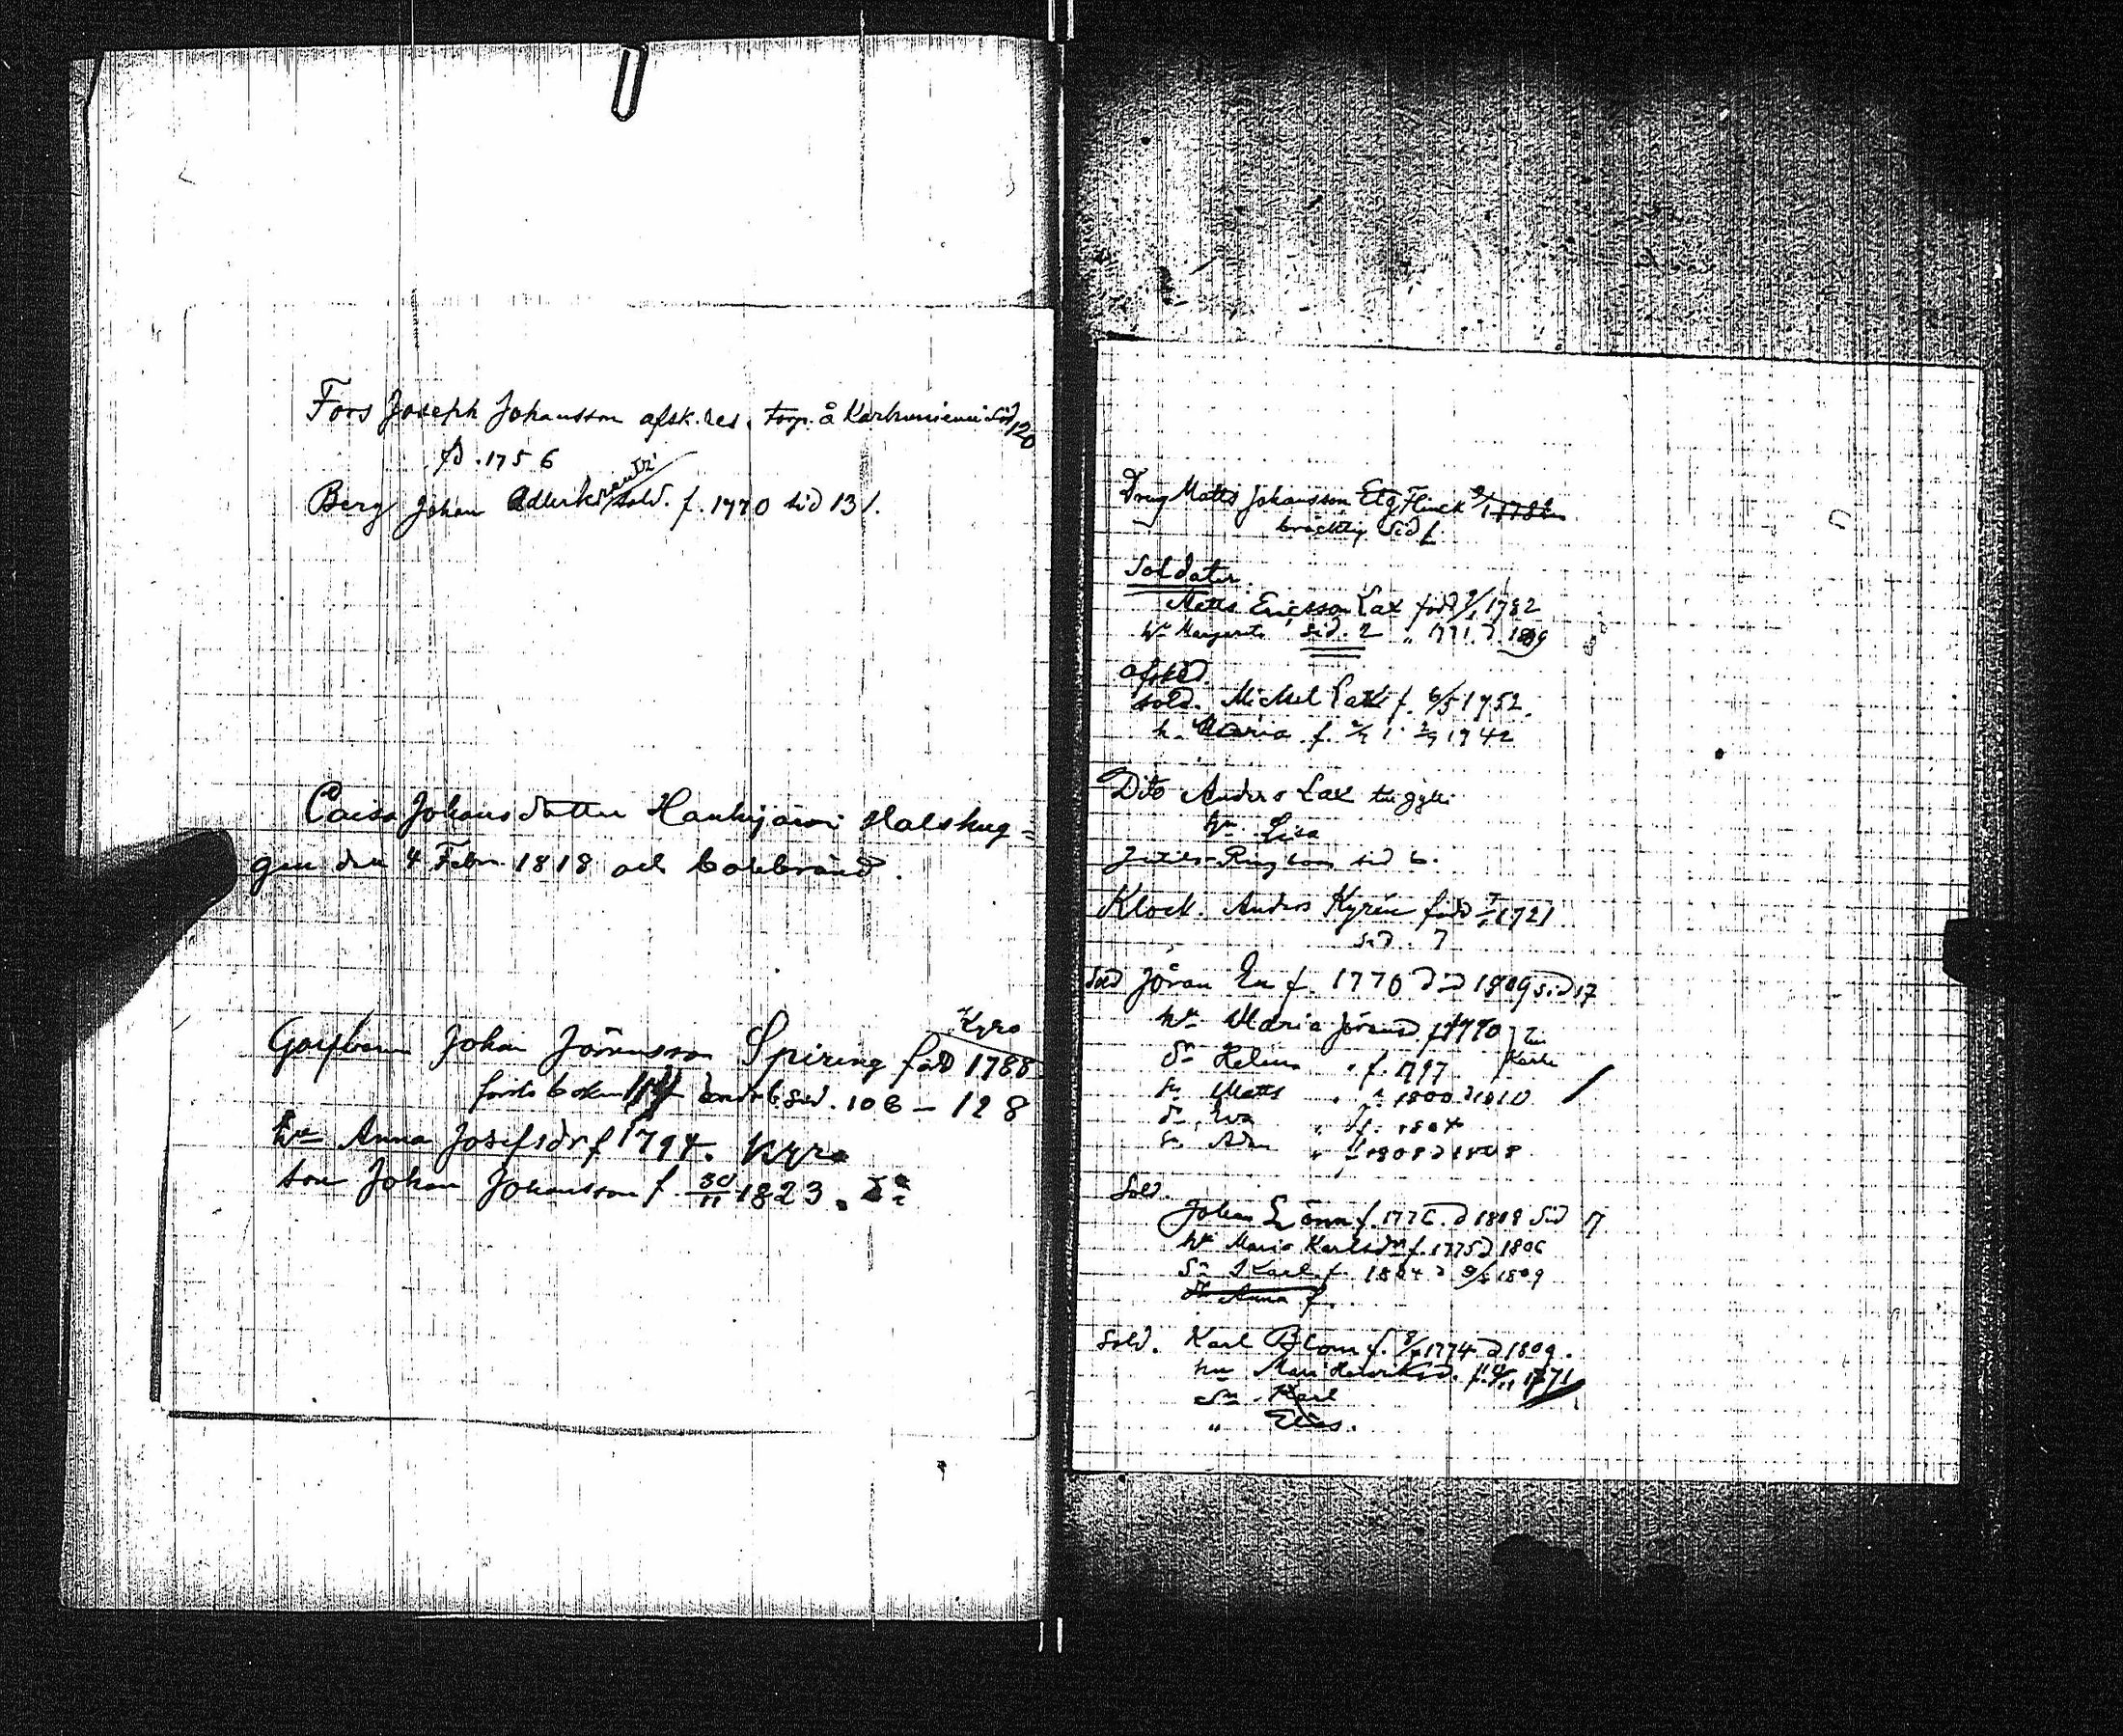 Fors Joseph Johansson afsk. res. torp. å Karhuniemi Sid 120
fd. 1756
Berg Johan Adlerkrantz' sold. f. 1770 sid 131.
Caisa Johansdotter Hankijärvi Halshug=
gen den 4 Febr. 1818 och bålbränd.
Kyro
Johan Jöransson Spiring född 1788
sid. 106 – 128
hu Anna Josefsdr f 1794. Kyro
son Johan Johansson f. 30/11 1823. do
Dreng Matts Johansson Elg Flinck
bräcklig Sid 1.
Soldater.
Matts Ericsson Lax född 1782
hu Margareta sid. 2 " 1771. d. 1809
afsked.
sold. Michel Lax f. 6/5 1752.
h. Maria f. 1742
Dito Anders Lax
hu Lisa
Ringbom sid 6.
Klock. Anders Kyrén född 1721
sid. 7
Sold Jöran En f. 1770 död 1809 sid 17
hu Maria Jöransd. f 1770
dr Helena " f. 1797
sn Matts " f. 1800 d 1810
dr Eva " f. 1804
sn Adam " f 1808 d 1808
Sold.
Johan Lönn f. 1776. d 1808 Sid 17
hu Maria Karlsdr f. 1775 d 1806
sn Karl f. 1804 d 1809
dr Anna f.
Sold. Karl Blom f. 1774 d 1809.
hu Maria Henriksd. f. 1771
sn Karl
" Elias.